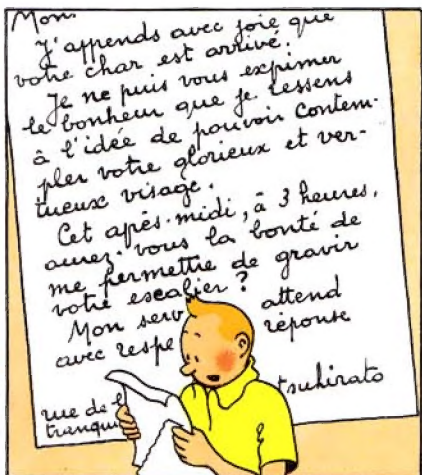 Mon
J'apprends avec joie que
votre char est arrivé.
Je ne puis vous exprimer
le bonheur que je ressens
à l'idée de pouvoir contem-
pler votre glorieux et ver-
tueux visage.
Cet après-midi, à 3 heures,
aurez-vous la bonté de
me permettre de gravir
votre escalier ?
Mon serv attend
avec respe réponse
rue de l tsuhirato
tranqui